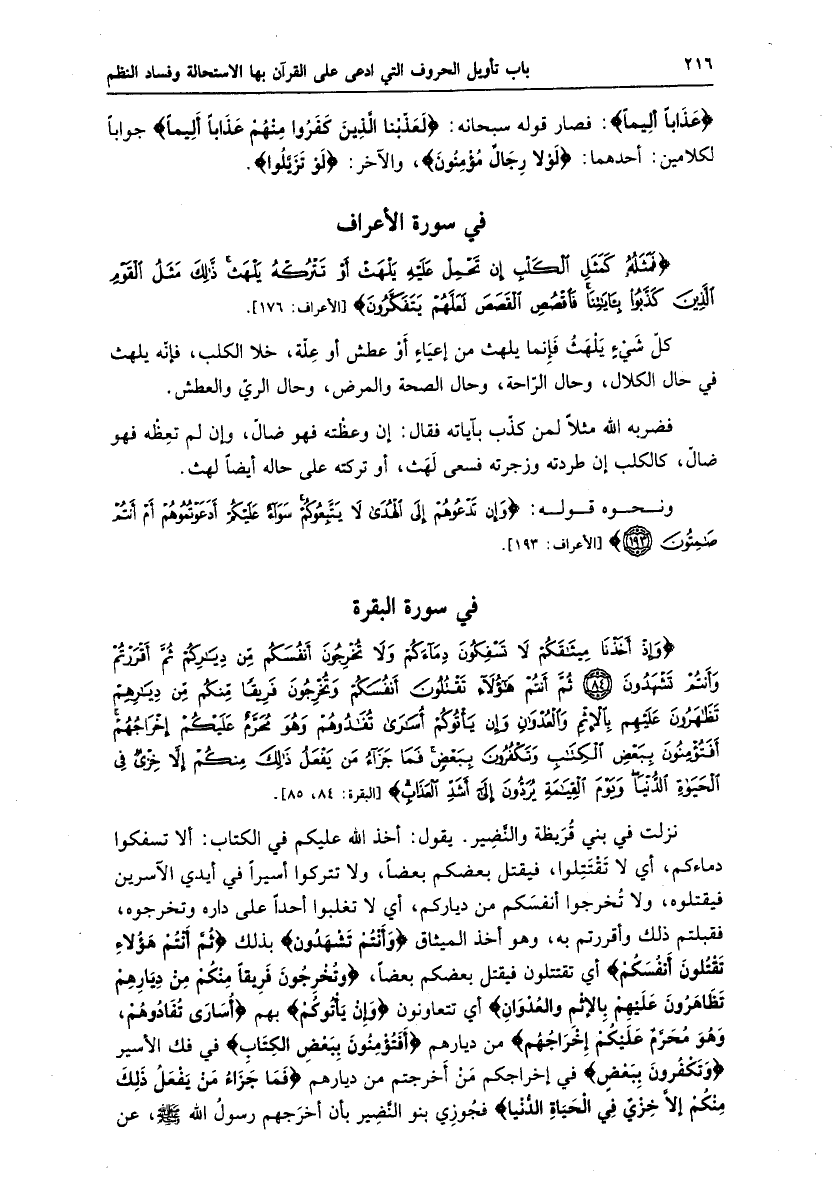 ٢١٦ باب تأويل الحروف التي ادعى على القرآن بها الاستحالة وفساد النظم
﴿عَذَاباً أَلِيماً﴾: فصار قوله سبحانه: ﴿لَعَذَّبْنا الَّذِينَ كَفَرُوا مِنْهُمْ عَذَاباً أَلِيماً﴾ جواباً
لكلامين: أحدهما: ﴿لَوْلا رِجَالٌ مُؤْمِنُونَ﴾، والآخر: ﴿لَوْ تَزَيَّلُوا﴾.
في سورة الأعراف
﴿فَمَثَلُهُۥ كَمَثَلِ ٱلْكَلْبِ إِن تَحْمِلْ عَلَيْهِ يَلْهَثْ أَوْ تَتْرُكْهُ يَلْهَثۚ ذَّٰلِكَ مَثَلُ ٱلْقَوْمِ
ٱلَّذِينَ كَذَّبُوا۟ بِـَٔايَٰتِنَاۚ فَٱقْصُصِ ٱلْقَصَصَ لَعَلَّهُمْ يَتَفَكَّرُونَ﴾ [الأعراف: ١٧٦].
كلّ شَيْءٍ يَلْهَثُ فَإِنما يلهث من إعيَاءٍ أَوْ عطش أو عِلّة، خلا الكلب، فإنّه يلهث
في حال الكلال، وحال الرّاحة، وحال الصحة والمرض، وحال الريّ والعطش.
فضربه الله مثلاً لمن كذّب بآياته فقال: إن وعظْته فهو ضالّ، وإن لم تعِظْه فهو
ضالّ، كالكلب إن طردته وزجرته فسعى لَهَث، أو تركته على حاله أيضاً لهث.
ونـحـوه قـولـه: ﴿وَإِن تَدْعُوهُمْ إِلَى ٱلْهُدَىٰ لَا يَتَّبِعُوكُمْۚ سَوَآءٌ عَلَيْكُمْ أَدَعَوْتُمُوهُمْ أَمْ أَنتُمْ
صَٰمِتُونَ ١٩٣﴾ [الأعراف: ١٩٣].
في سورة البقرة
﴿وَإِذْ أَخَذْنَا مِيثَٰقَكُمْ لَا تَسْفِكُونَ دِمَآءَكُمْ وَلَا تُخْرِجُونَ أَنفُسَكُم مِّن دِيَٰرِكُمْ ثُمَّ أَقْرَرْتُمْ
وَأَنتُمْ تَشْهَدُونَ ٨٤ ثُمَّ أَنتُمْ هَٰٓؤُلَآءِ تَقْتُلُونَ أَنفُسَكُمْ وَتُخْرِجُونَ فَرِيقًا مِّنكُم مِّن دِيَٰرِهِمْ
تَظَٰهَرُونَ عَلَيْهِم بِٱلْإِثْمِ وَٱلْعُدْوَٰنِ وَإِن يَأْتُوكُمْ أُسَٰرَىٰ تُفَٰدُوهُمْ وَهُوَ مُحَرَّمٌ عَلَيْكُمْ إِخْرَاجُهُمْۚ
أَفَتُؤْمِنُونَ بِبَعْضِ ٱلْكِتَٰبِ وَتَكْفُرُونَ بِبَعْضٍۚ فَمَا جَزَآءُ مَن يَفْعَلُ ذَٰلِكَ مِنكُمْ إِلَّا خِزْىٌ فِى
ٱلْحَيَوٰةِ ٱلدُّنْيَاۖ وَيَوْمَ ٱلْقِيَٰمَةِ يُرَدُّونَ إِلَىٰٓ أَشَدِّ ٱلْعَذَابِ﴾ [البقرة: ٨٤، ٨٥].
نزلت في بني قُرَيظة والنَّضِير. يقول: أخذ الله عليكم في الكتاب: ألا تسفكوا
دماءكم، أي لا تَقْتَتِلوا، فيقتل بعضكم بعضاً، ولا تتركوا أسيراً في أيدي الآسرين
فيقتلوه، ولا تُخرجوا أنفسَكم من دياركم، أي لا تغلبوا أحداً على داره وتخرجوه،
فقبلتم ذلك وأقررتم به، وهو أخذ الميثاق ﴿وَأَنْتُمْ تَشْهَدُون﴾ بذلك ﴿ثُمَّ أَنْتُمْ هَؤُلاءِ
تَقْتُلونَ أَنفُسَكُمْ﴾ أي تقتتلون فيقتل بعضكم بعضاً، ﴿وتُخْرِجُونَ فَرِيقاً مِنْكُمْ مِنْ دِيَارِهِمْ
تَظَاهَرُونَ عَلَيْهِمْ بِالإِثْمِ والعُدْوَانِ﴾ أي تتعاونون ﴿وَإِنْ يَأْتُوكُمْ﴾ بهم ﴿أُسَارَى تُفَادُوهُمْ،
وَهُوَ مُحَرَّمٌ عَلَيْكُمْ إِخْرَاجُهُم﴾ من ديارهم ﴿أَفَتُؤْمِنُونَ بِبَعْضِ الكِتَابِ﴾ في فك الأسير
﴿وَتَكْفُرُونَ بِبَعْضٍ﴾ في إخراجكم مَنْ أَخرجتم من ديارهم ﴿فَمَا جَزَاءُ مَنْ يَفْعَلُ ذَلِكَ
مِنْكُمْ إِلاَّ خِزْيٌ فِي الْحَيَاةِ الدُّنْيا﴾ فجُوزِي بنو النَّضِير بأن أخرَجهم رسولُ الله ﷺ، عن